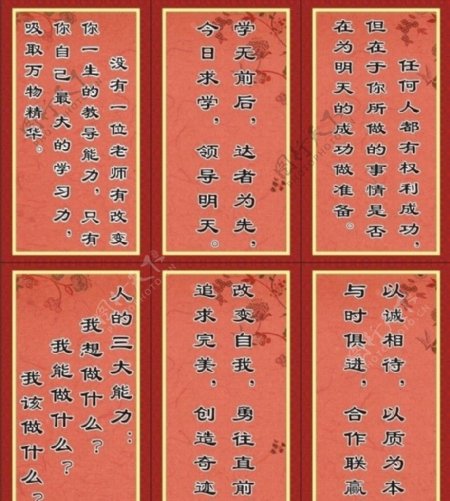 没有一位老师有改变
你一生的教导能力，只有
你自己最大的学习力，
吸取万物精华。
学无前后，达者为先，
今日求学，领导明天。
任何人都有权利成功，
但在于你所做的事情是否
在为明天的成功做准备。
人的三大能力：
我想做什么？
我能做什么？
我该做什么？
改变自我，勇往直前
追求完美，创造奇迹
以诚相待，以质为本
与时俱进，合作联赢